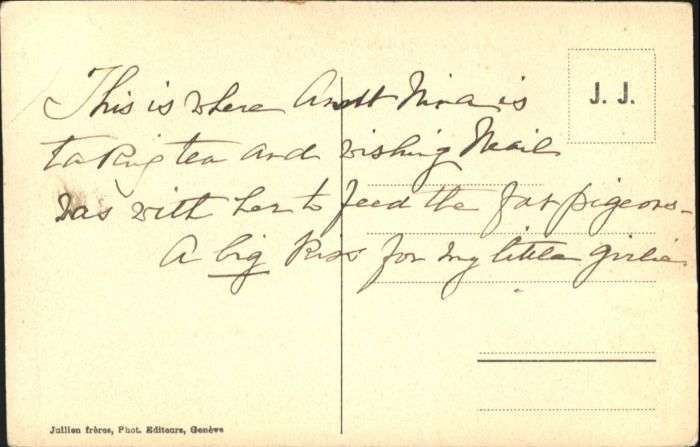 This is where Aunt Nina is
J. J.
taking tea and wishing
was with her to feed the fat pigeons -
A big Kiss for my little girlie
Jullien frères, Phot. Editeurs, Genève